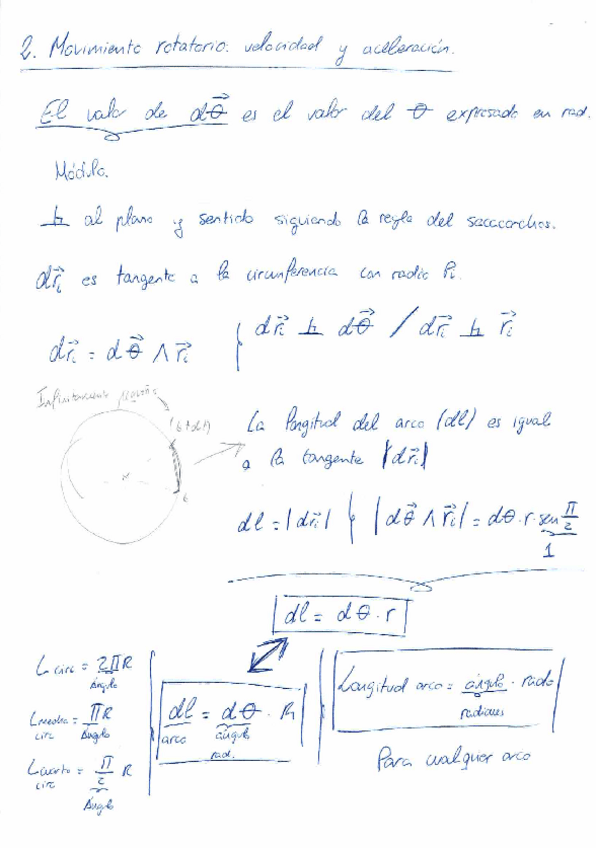 2. Movimiento rotatorio: velocidad y aceleración.
El valor de dθ⃗ es el valor del θ expresado en rad.
Módulo.
⊥ al plano y sentido siguiendo la regla del sacacorchos.
dr⃗ᵢ es tangente a la circunferencia con radio
dr⃗ᵢ = dθ⃗ ∧ r⃗ᵢ { dr⃗ᵢ ⊥ dθ⃗ / dr⃗ᵢ ⊥ r⃗ᵢ
Infinitamente pequeño
(t+dt)
t
La longitud del arco (dl) es igual
a la tangente |dr⃗ᵢ|
dl = |dr⃗ᵢ| { |dθ⃗ ∧ r⃗ᵢ| = dθ · r · sen π/2
1
dl = dθ · r
L circ = 2π R
Ángulo
L media circ = π R
Ángulo
L cuarto circ = π/2 R
Ángulo
dl = dθ · R
arco ángulo
rad.
Longitud arco = ángulo · radio
radianes
Para cualquier arco